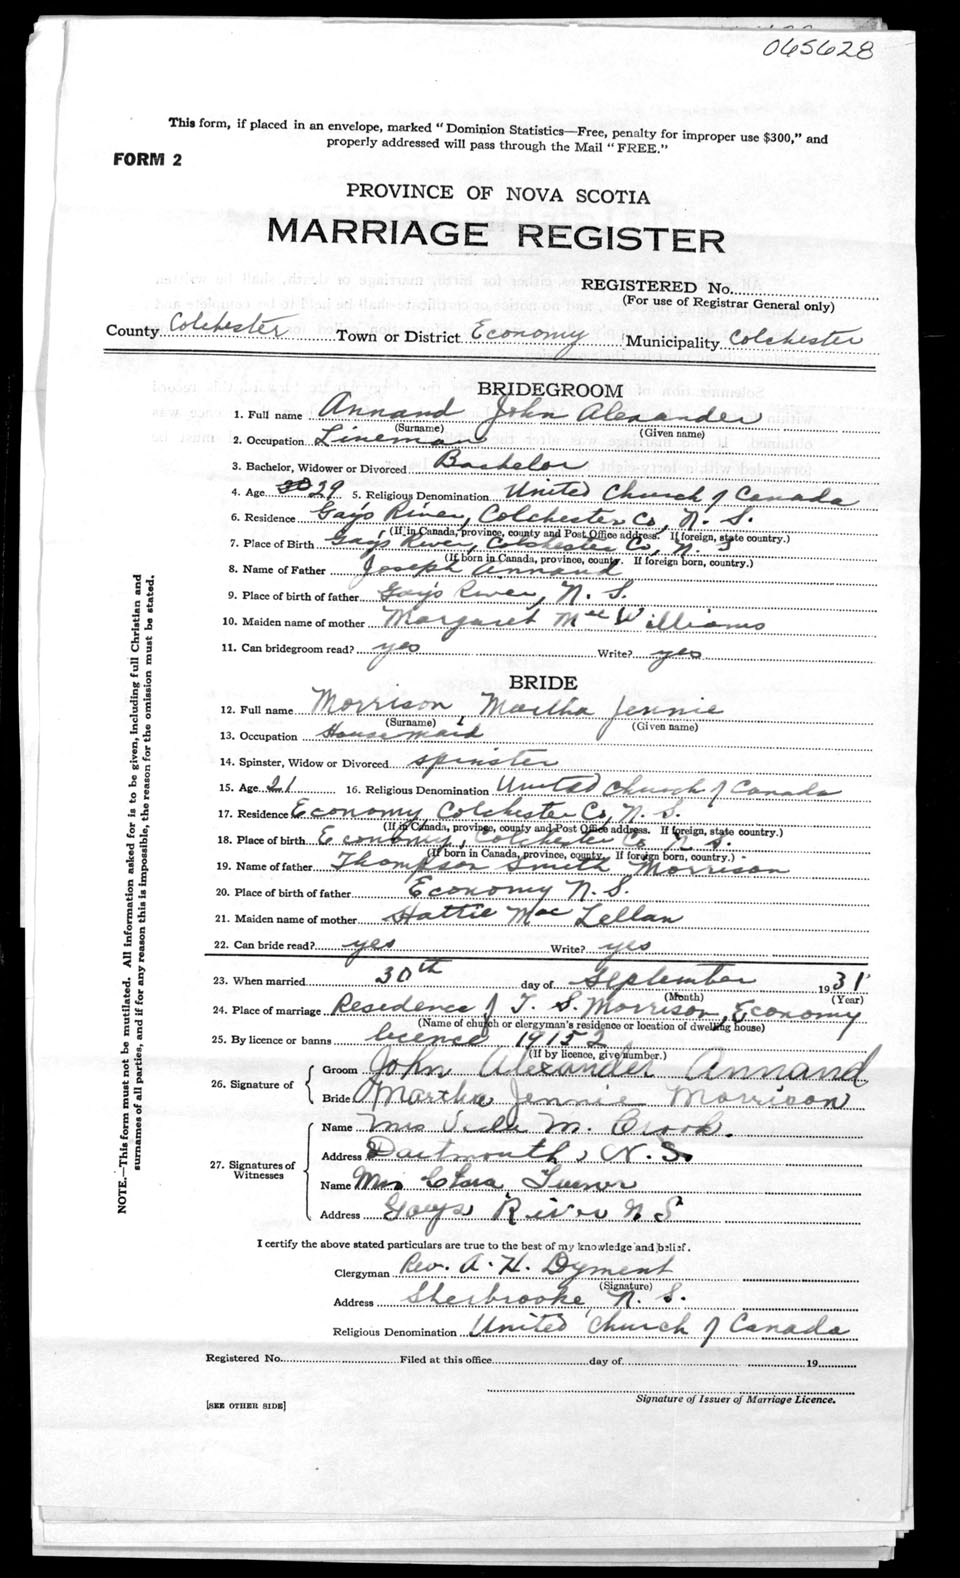 065628
This form, if placed in an envelope, marked "Dominion Statistics—Free, penalty for improper use $300," and
properly addressed will pass through the Mail "FREE."
FORM 2
PROVINCE OF NOVA SCOTIA
MARRIAGE REGISTER
REGISTERED No.
(For use of Registrar General only)
County Colchester Town or District Economy Municipality Colchester
BRIDEGROOM
1. Full name Annand John Alexander
(Surname) (Given name)
2. Occupation Lineman
3. Bachelor, Widower or Divorced Bachelor
4. Age 30 29 5. Religious Denomination United Church of Canada
6. Residence Gay's River, Colchester Co, N. S.
(If in Canada, province, county and Post Office address. If foreign, state country.)
7. Place of Birth Gay's River, Colchester Co, N. S
(If born in Canada, province, county. If foreign born, country.)
8. Name of Father Joseph Annand
9. Place of birth of father Gay's River, N. S.
10. Maiden name of mother Margaret MacWilliams
11. Can bridegroom read? yes Write? yes
BRIDE
12. Full name Morrison Martha Jennie
(Surname) (Given name)
13. Occupation Housemaid
14. Spinster, Widow or Divorced spinster
15. Age 21 16. Religious Denomination United Church of Canada
17. Residence Economy Colchester Co, N. S.
(If in Canada, province, county and Post Office address. If foreign, state country.)
18. Place of birth Economy, Colchester Co N. S.
(If born in Canada, province, county. If foreign born, country.)
19. Name of father Thompson Smith Morrison
20. Place of birth of father Economy N. S.
21. Maiden name of mother Hattie Mac Lellan
22. Can bride read? yes Write? yes
23. When married 30th day of September 1931
(Month) (Year)
24. Place of marriage Residence of T. S. Morrison, Economy
(Name of church or clergyman's residence or location of dwelling house)
25. By licence or banns licence 19152
(If by licence, give number.)
26. Signature of
Groom John Alexander Annand
Bride Martha Jennie Morrison
27. Signatures of Witnesses
Name Mrs M. Brook.
Address Dartmouth, N. S.
Name Mrs Clara Turner
Address Gays River N S
I certify the above stated particulars are true to the best of my knowledge and belief.
Clergyman Rev. A. H. Dyment
(Signature)
Address Sherbrooke, N. S.
Religious Denomination United Church of Canada
Registered No. Filed at this office day of 19
Signature of Issuer of Marriage Licence.
[SEE OTHER SIDE]
NOTE.—This form must not be mutilated. All information asked for is to be given, including full Christian and
surnames of all parties, and if for any reason this is impossible, the reason for the omission must be stated.